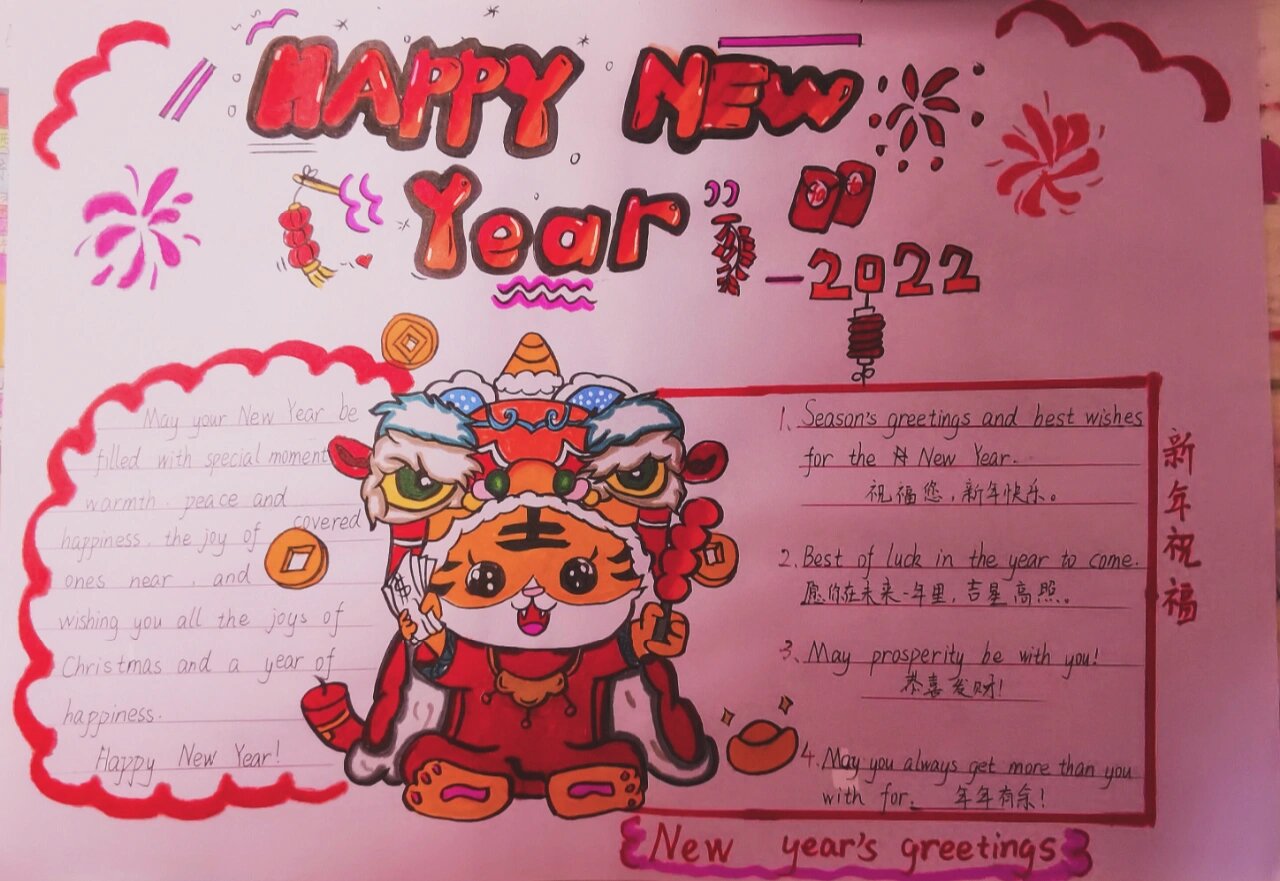 HAPPY NEW
Year
2022
May your New Year be
filled with special moment
warmth. peace and
happiness. the joy of covered
ones near, and
wishing you all the joys of
Christmas and a year of
happiness.
Happy New Year!
1、Season's greetings and best wishes
for the New Year.
祝福您,新年快乐。
2、Best of luck in the year to come.
愿你在未来一年里,吉星高照。
3、May prosperity be with you!
恭喜发财!
4、May you always get more than you
with for. 年年有余!
新年祝福
New year's greetings